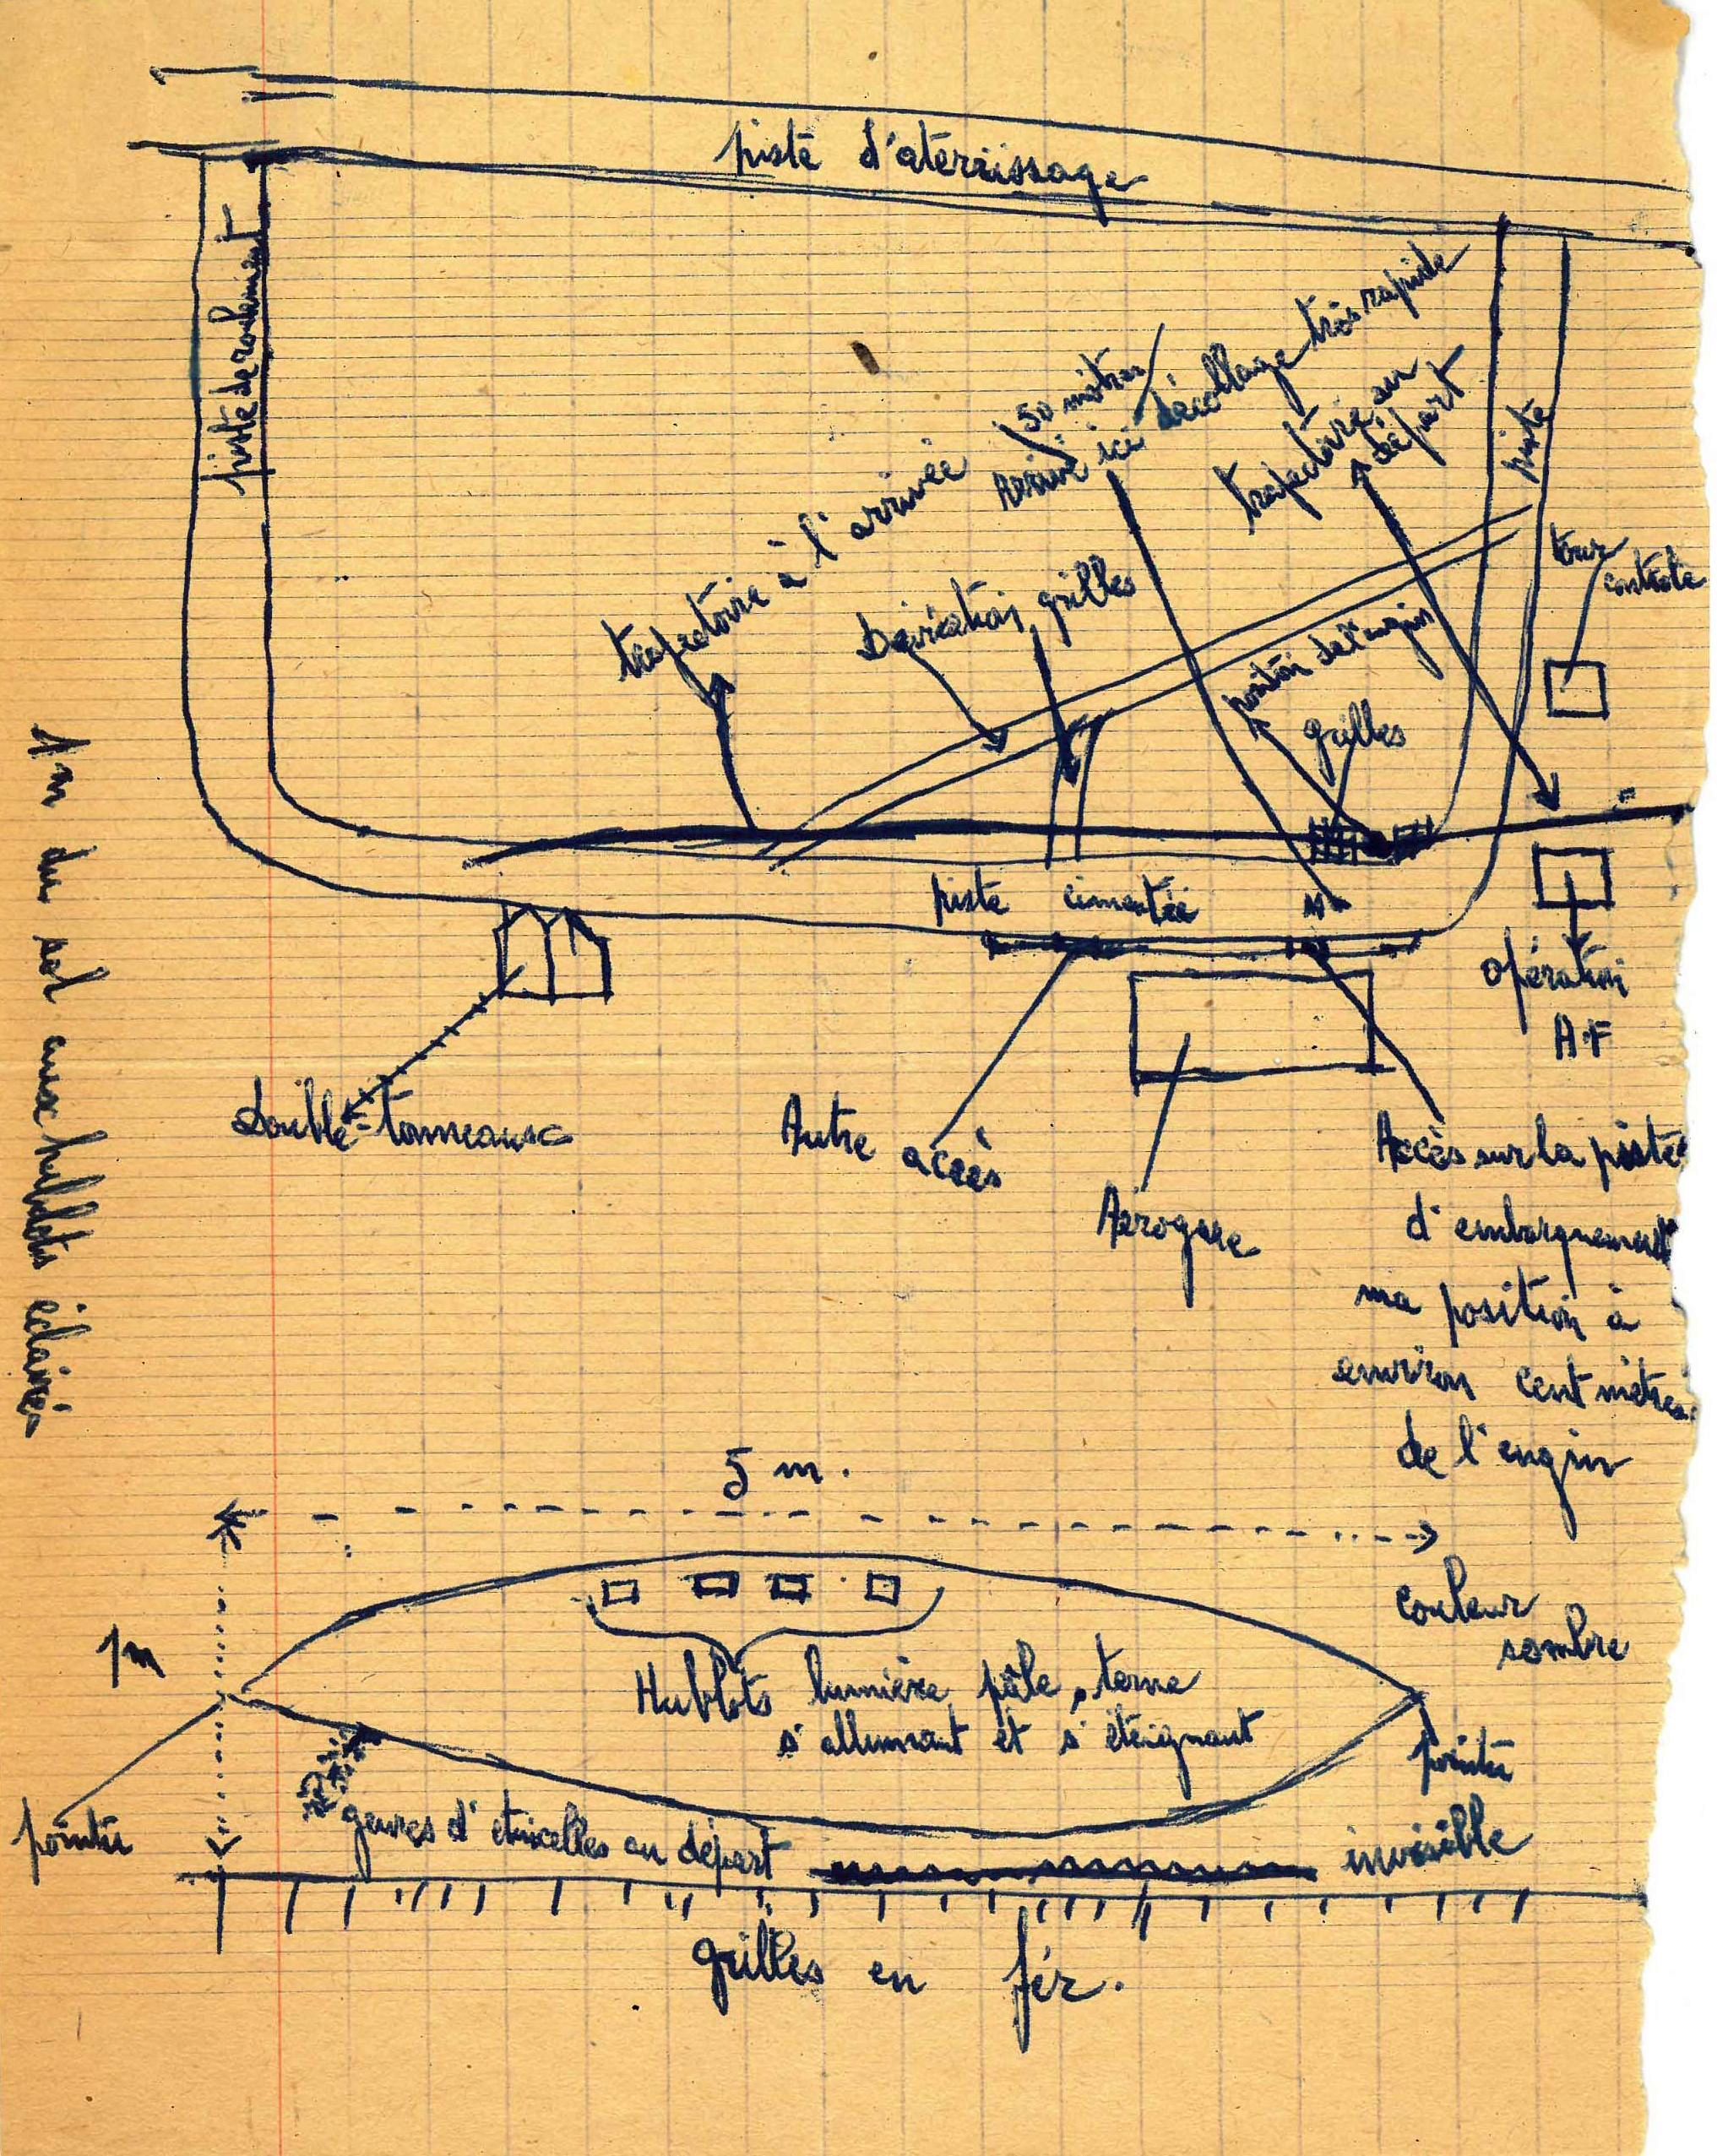 piste d'aterrissage
piste de roulement
trajectoire à l'arrivée
50 mètres
arrivé ici décollage très rapide
trajectoire au
départ
piste
tour
contrôle
Dérivation grilles
position de l'engin
grilles
piste cimentée
opération
A.F
Double-tonneaux
Autre accès
Aérogare
Accès sur la piste
d'embarquement
ma position à
environ cent mètres
de l'engin
1m du sol aux hublots éclairés
5 m.
1m
couleur
sombre
Hublots lumière pâle, terne
s'allumant et s'éteignant
pointu
pointu
genres d'etincelles au départ
invisible
grilles en fer.